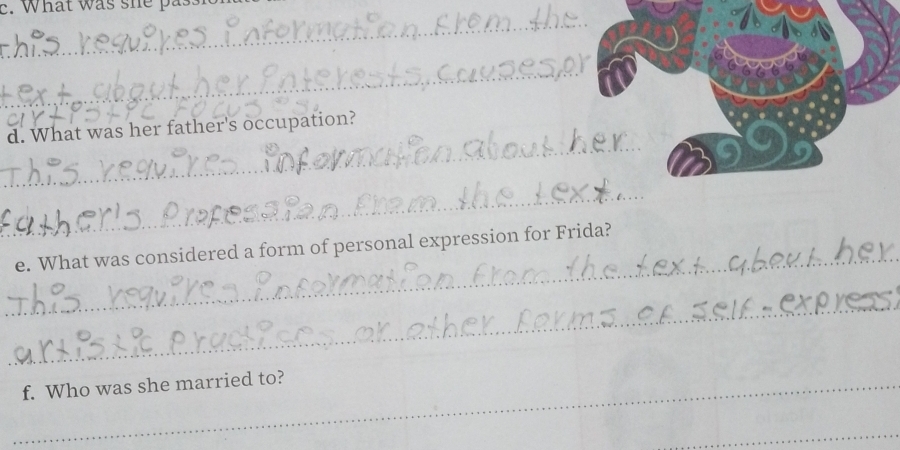 c. What was she
This requires information from the
text about her interests, causes, or
artistic focus es.
d. What was her father's occupation?
This requires information about her
father's profession from the text.
e. What was considered a form of personal expression for Frida?
This requires information from the text about her
artistic practices or other forms of self-express
f. Who was she married to?